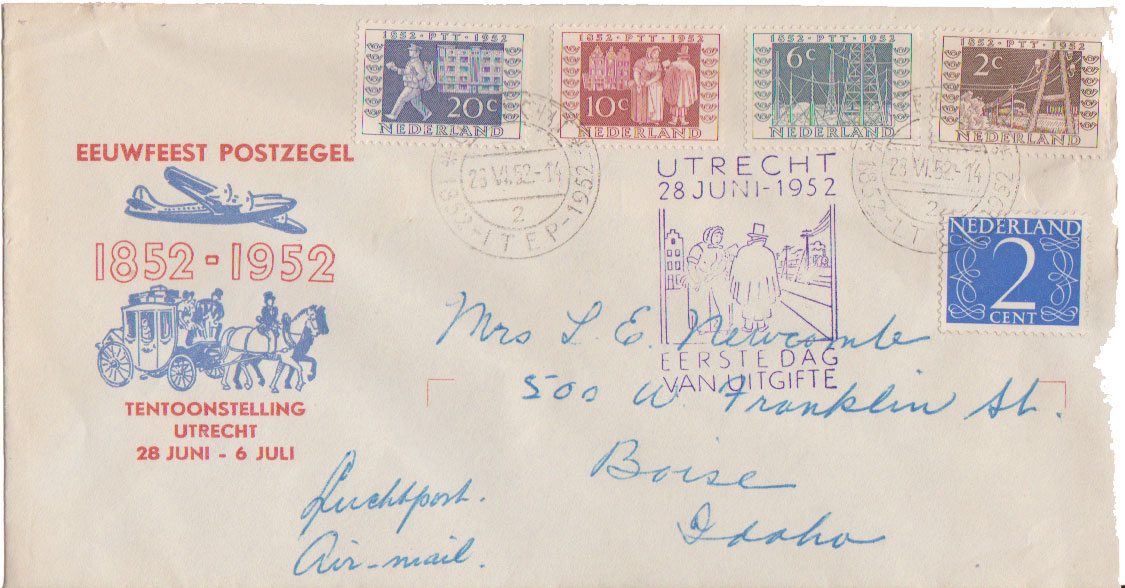 1852 · PTT · 1952
20c
NEDERLAND
1852 · PTT · 1952
10c
NEDERLAND
1852 · PTT · 1952
6c
NEDERLAND
1852 · PTT · 1952
2c
NEDERLAND
EEUWFEEST POSTZEGEL
1852 - 1952
TENTOONSTELLING
UTRECHT
28 JUNI - 6 JULI
28 VI.52-14
2
* 1852 - ITEP - 1952 *
UTRECHT
28 JUNI-1952
EERSTE DAG
VAN UITGIFTE
28 VI.52-14
2
NEDERLAND
2
CENT
Mrs L. E. Newcomb
500 W. Franklin St.
Boise
Idaho
Luchtpost.
Air-mail.